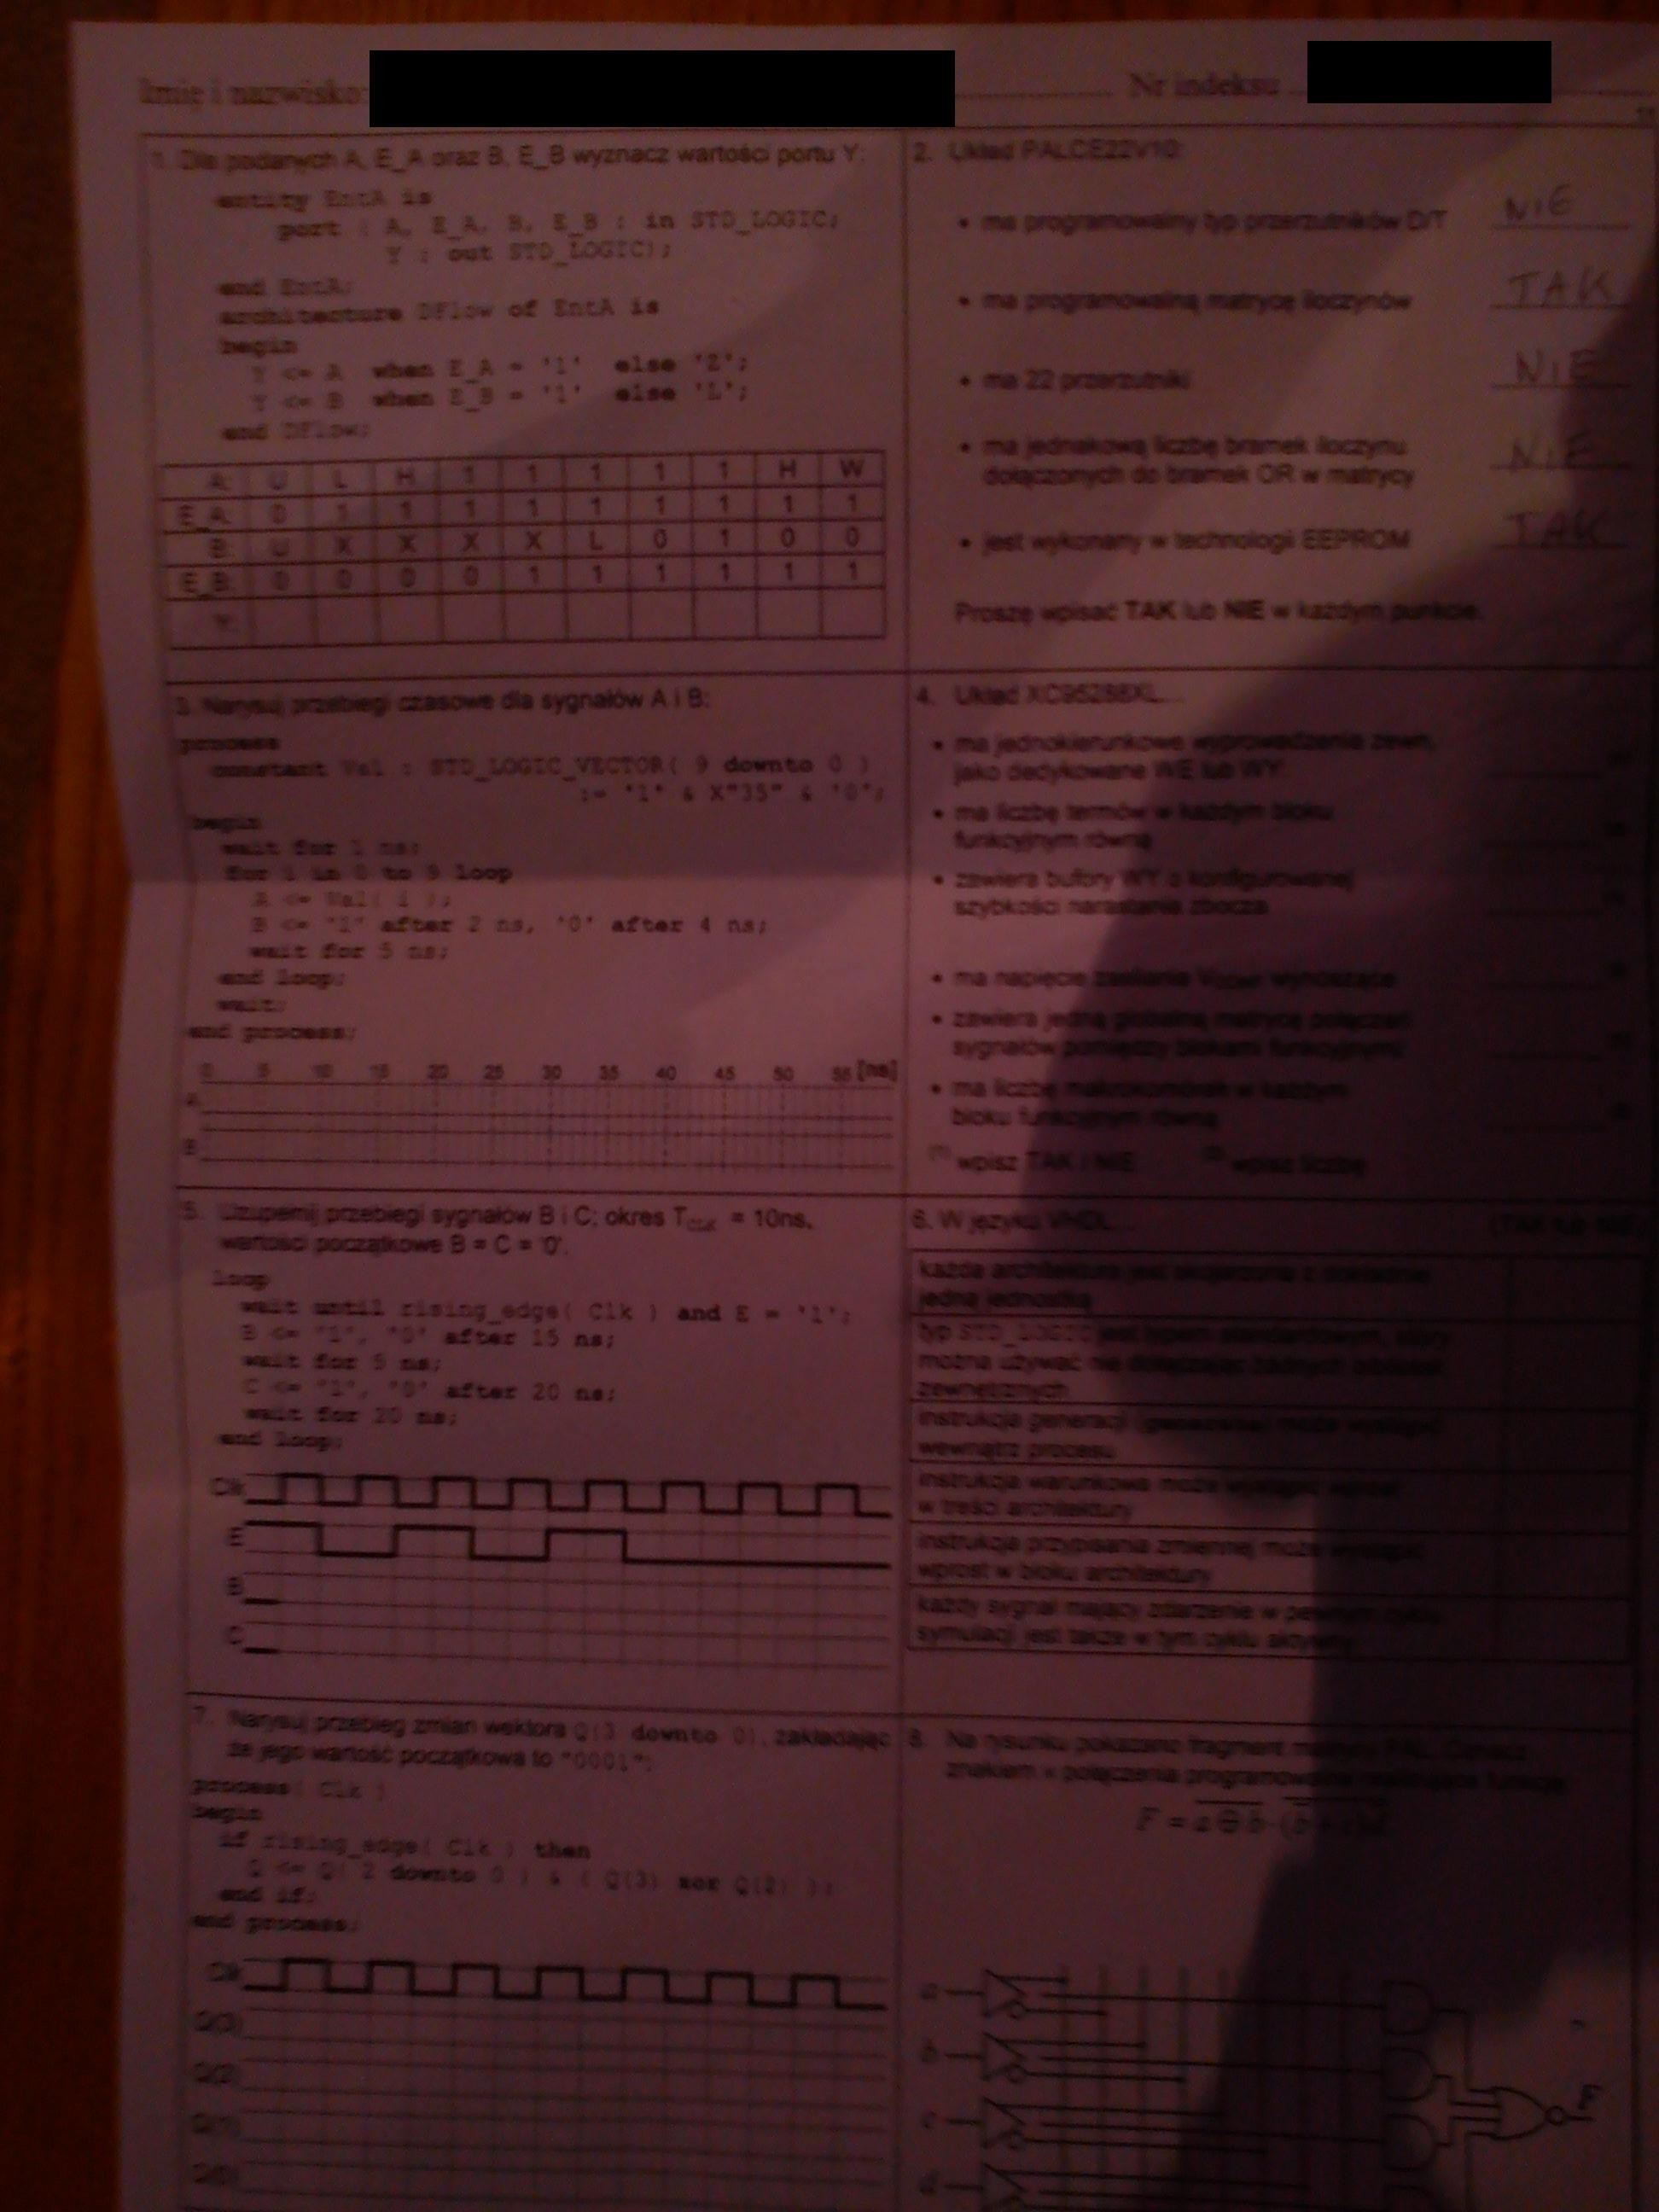 Imię i nazwisko:
Nr indeksu
1. Dla podanych A, E_A oraz B, E_B wyznacz wartości portu Y:
entity EntA is
port ( A, E_A, B, E_B : in STD_LOGIC;
Y : out STD_LOGIC);
end EntA;
architecture DFlow of EntA is
begin
Y <= A when E_A = '1' else 'Z';
Y <= B when E_B = '1' else 'L';
end DFlow;
A: U L H 1 1 1 1 1 H W
E_A: 0 1 1 1 1 1 1 1 1 1
B: U X X X X L 0 1 0 0
E_B: 0 0 0 0 1 1 1 1 1 1
Y:
2. Układ PALCE22V10:
• ma programowalny typ przerzutników D/T NIE
• ma programowalną matrycę iloczynów TAK
• ma 22 przerzutniki NIE
• ma jednakową liczbę bramek iloczynu
dołączonych do bramek OR w matrycy NIE
• jest wykonany w technologii EEPROM TAK
Proszę wpisać TAK lub NIE w każdym punkcie.
3. Narysuj przebiegi czasowe dla sygnałów A i B:
process
constant Val : STD_LOGIC_VECTOR( 9 downto 0 )
:= '1' & X"35" & '0';
begin
wait for 1 ns;
for i in 0 to 9 loop
A <= Val( i );
B <= '1' after 2 ns, '0' after 4 ns;
wait for 5 ns;
end loop;
wait;
end process;
0 5 10 15 20 25 30 35 40 45 50 55 [ns]
A
B
4. Układ XC95288XL...
• ma jednokierunkowe wyprowadzenia zewn.
jako dedykowane WE lub WY
• ma liczbę termów w każdym bloku
funkcyjnym równą
• zawiera bufory WY o konfigurowanej
szybkości narastania zbocza
• ma napięcie zasilania wynoszące
• zawiera jedną globalną matrycę połączeń
sygnałów pomiędzy blokami funkcyjnymi
• ma liczbę makrokomórek w każdym
bloku funkcyjnym równą
(1) wpisz TAK / NIE (2) wpisz liczbę
5. Uzupełnij przebiegi sygnałów B i C; okres TCLK = 10ns,
wartości początkowe B = C = '0'.
loop
wait until rising_edge( Clk ) and E = '1';
B <= '1', '0' after 15 ns;
wait for 5 ns;
C <= '1', '0' after 20 ns;
wait for 20 ns;
end loop;
Clk
E
B
C
6. W języku VHDL... (TAK lub NIE)
każda architektura jest skojarzona z dokładnie
jedną jednostką
typ STD_LOGIC jest typem standardowym, który
można używać nie dołączając żadnych bibliotek
zewnętrznych
instrukcja generacji (generate) może wystąpić
wewnątrz procesu
instrukcja warunkowa może wystąpić wprost
w treści architektury
instrukcja przypisania zmiennej może wystąpić
wprost w bloku architektury
każdy sygnał mający zdarzenie w pewnym cyklu
symulacji jest także w tym cyklu aktywny
7. Narysuj przebieg zmian wektora Q(3 downto 0), zakładając
że jego wartość początkowa to "0001":
process( Clk )
begin
if rising_edge( Clk ) then
Q <= Q( 2 downto 0 ) & ( Q(3) xor Q(2) );
end if;
end process;
Clk
Q(3)
Q(2)
Q(1)
Q(0)
8. Na rysunku pokazano fragment matrycy PAL.
znakiem × połączenia programowalne realizujące funkcję
F = a⊕b·
a
b
c
d
F